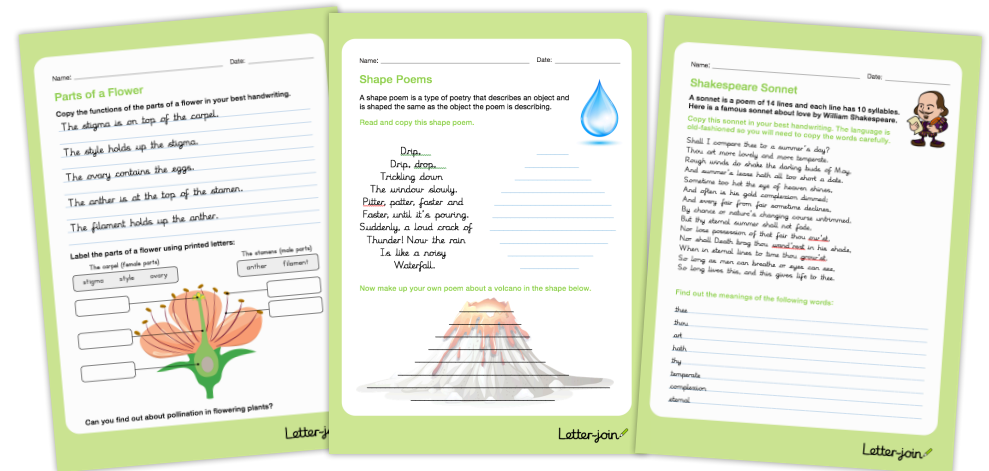 Name:
Date:
Parts of a Flower
Copy the functions of the parts of a flower in your best handwriting.
The stigma is on top of the carpel.
The style holds up the stigma.
The ovary contains the eggs.
The anther is at the top of the stamen.
The filament holds up the anther.
Label the parts of a flower using printed letters:
The carpel (female parts)
stigma style ovary
The stamens (male parts)
anther filament
Can you find out about pollination in flowering plants?
Letter-j
Name:
Date:
Shape Poems
A shape poem is a type of poetry that describes an object and
is shaped the same as the object the poem is describing.
Read and copy this shape poem.
Drip,
Drip, drop,
Trickling down
The window slowly.
Pitter, patter, faster and
Faster, until it's pouring.
Suddenly, a loud crack of
Thunder! Now the rain
Is like a noisy
Waterfall.
Now make up your own poem about a volcano in the shape below.
Letter-join
Name:
Date:
Shakespeare Sonnet
A sonnet is a poem of 14 lines and each line has 10 syllables.
Here is a famous sonnet about love by William Shakespeare.
Copy this sonnet in your best handwriting. The language is
old-fashioned so you will need to copy the words carefully.
Shall I compare thee to a summer's day?
Thou art more lovely and more temperate.
Rough winds do shake the darling buds of May,
And summer's lease hath all too short a date.
Sometime too hot the eye of heaven shines,
And often is his gold complexion dimmed;
And every fair from fair sometime declines,
By chance or nature's changing course untrimmed.
But thy eternal summer shall not fade,
Nor lose possession of that fair thou ow'st,
Nor shall Death brag thou wand'rest in his shade,
When in eternal lines to time thou grow'st.
So long as men can breathe or eyes can see,
So long lives this, and this gives life to thee.
Find out the meanings of the following words:
thee
thou
art
hath
thy
temperate
complexion
eternal
Letter-join